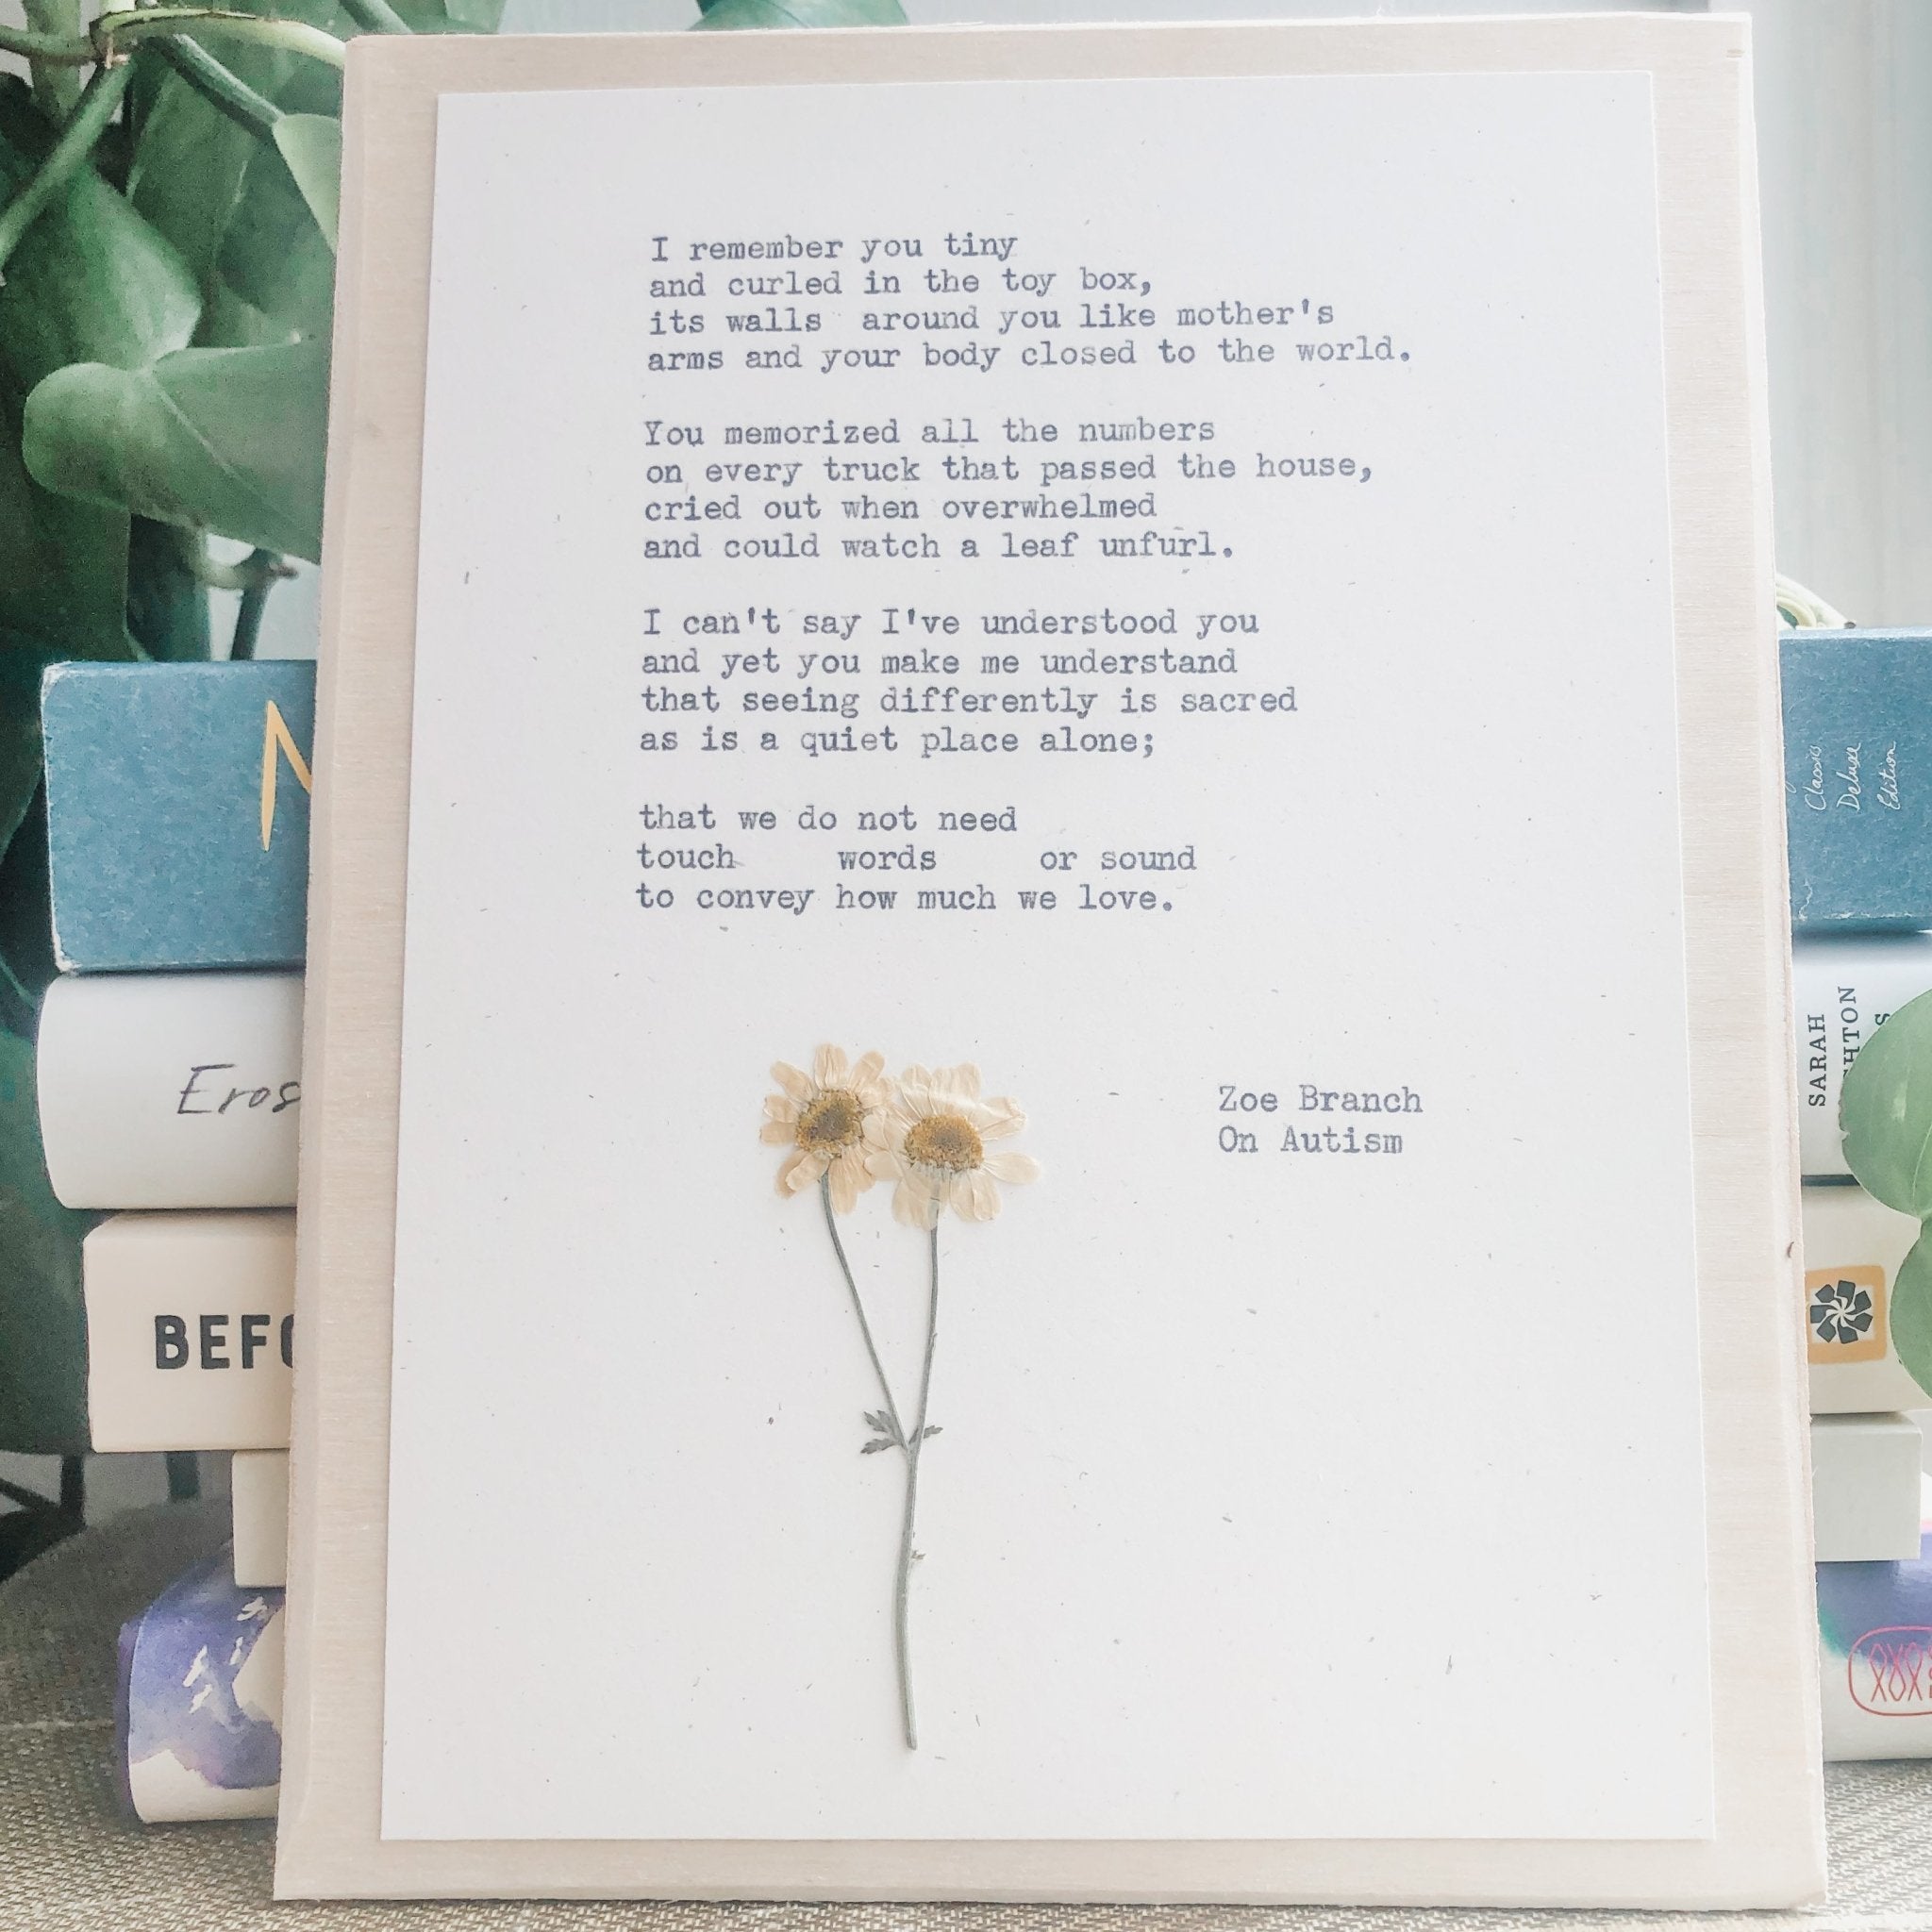 I remember you tiny
and curled in the toy box,
its walls around you like mother's
arms and your body closed to the world.
You memorized all the numbers
on every truck that passed the house,
cried out when overwhelmed
and could watch a leaf unfurl.
I can't say I've understood you
and yet you make me understand
that seeing differently is sacred
as is a quiet place alone;
that we do not need
touch words or sound
to convey how much we love.
Zoe Branch
On Autism
Classics
Deluxe
Edition
Eros
SARAH
HTON
S
BEFO